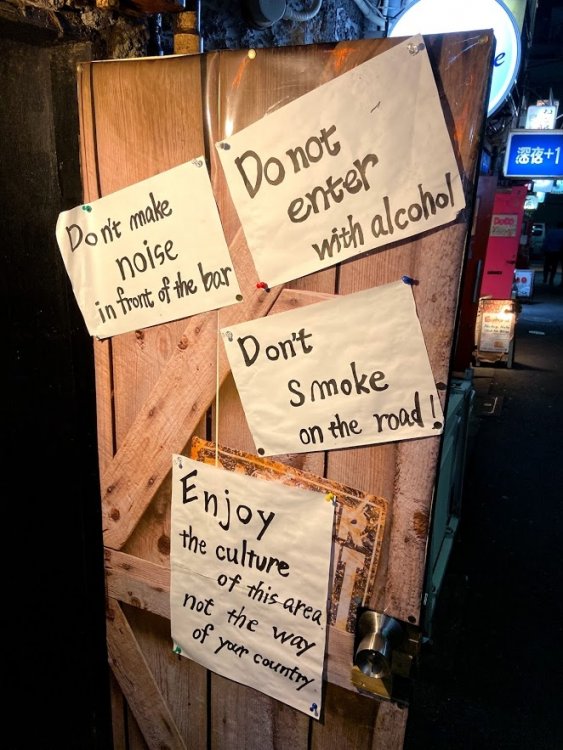 Don't make
noise
in front of the bar
Do not
enter
with alcohol
Don't
smoke
on the road!
Enjoy
the culture
of this area
not the way
of your country
深夜+1